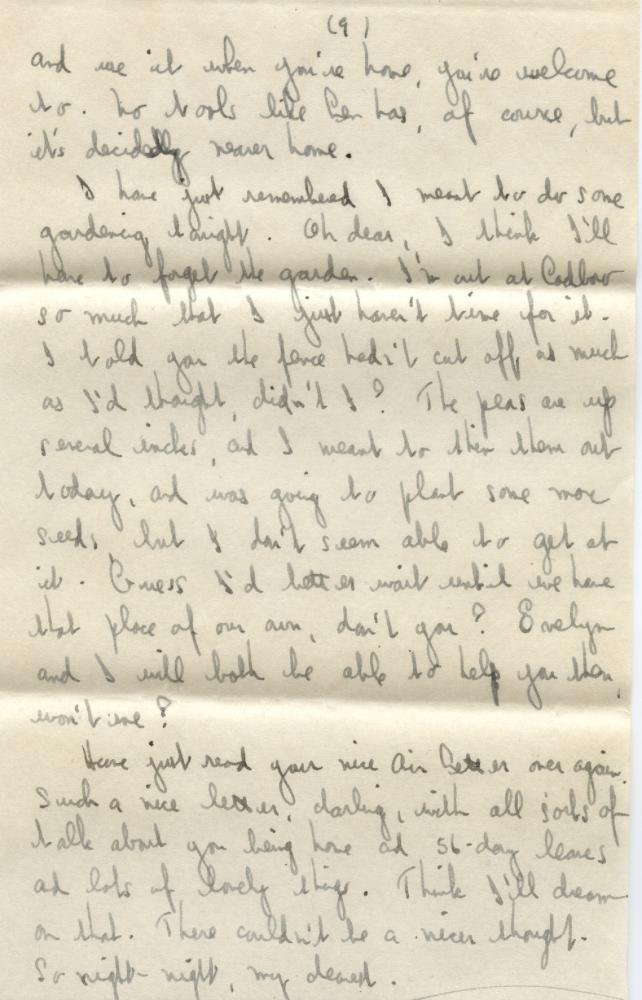 (9)
and use it when you're home, you're welcome
to. No tools like Ben has, of course, but
it's decidedly nearer home.
I have just remembered I meant to do some
gardening tonight. Oh dear, I think I'll
have to forget the garden. I'm out at Cadboro
so much that I just haven't time for it.
I told you the fence hadn't cut off as much
as I'd thought, didn't I? The peas are up
several inches, and I meant to thin them out
today, and was going to plant some more
seeds, but I don't seem able to get at
it. Guess I'd better wait until we have
that place of our own, don't you? Evelyn
and I will both be able to help you then,
won't we?
Have just read your nice Air Letter over again.
Such a nice letter, darling, with all sorts of
talk about you being home and 56-day leaves
and lots of lovely things. Think I'll dream
on that. There couldn't be a nicer thought.
So night-night, my dearest.